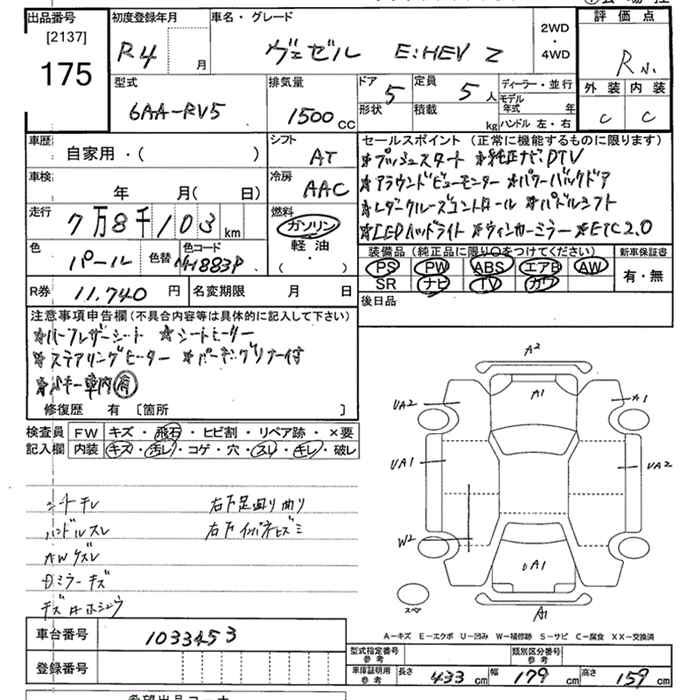 出品番号 初度登録年月 車名・グレード 評価点
[2137] R4 月 ヴェゼル E:HEV Z 2WD・4WD
175 R
型式 排気量 ドア 5 定員 5人 ディーラー・並行 外装 内装
6AA-RV5 1500cc 形状 積載 kg モデル年式 年 C C
ハンドル 左・右
車歴 自家用・( ) シフト AT セールスポイント (正常に機能するものに限ります)
★プッシュスタート ★純正ナビ、DTV
車検 年 月( 日) 冷房 AAC ★アラウンドビューモニター ★パワーバックドア
走行 7万8千103km 燃料 ガソリン ★レダークルーズコントロール ★パドルシフト
軽油 ★LEDヘッドライト ★ウィンカーミラー ★ETC2.0
色 パール 色替 色コード NH883P ( ・ ) 装備品 (純正品に限り○をつけてください) 新車保証書
PS PW ABS エアB AW 有・無
R券 11,740円 名変期限 月 日 SR ナビ TV カワ
後日品
注意事項申告欄(不具合内容等は具体的に記入して下さい)
★ハーフレザーシート ★シートヒーター
★ステアリングヒーター
車内有
修復歴 有 [箇所 ]
検査員 FW キズ・飛石・ヒビ割・リペア跡・×要
記入欄 内装 キズ・汚レ・コゲ・穴・スレ・キレ・破レ
シートキレ 右下足廻り曲り
ハンドルスレ
AWケズレ
Dミラーキズ
A2
A1
UA2 A1
UA1 UA2
W2
UA1
スペア A1
A-キズ E-エクボ U-凹み W-補修跡 S-サビ C-腐食 XX-交換済
車台番号 1033453 型式指定番号 参考 類別区分番号 参考
登録番号 車庫証明用 参考 長さ 433cm 幅 179cm 高さ 159cm